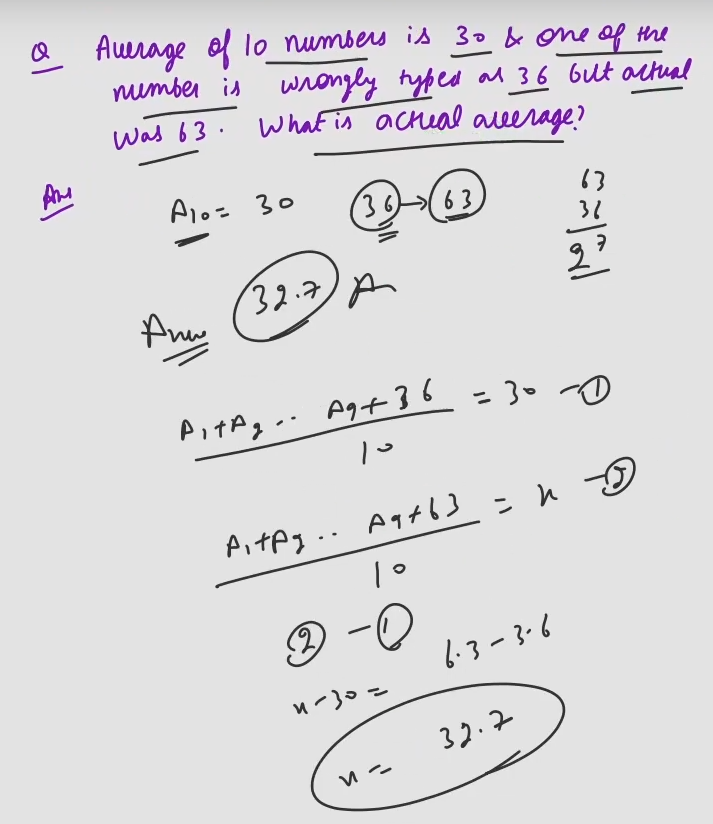 Q Average of 10 numbers is 30 & one of the
number is wrongly typed as 36 but actual
was 63. What is actual average?
Ans
A10 = 30 36 → 63
63
36
27
32.7 A
Anew
A1+A2 .. A9+36 = 30 - 1
10
A1+A2 .. A9+63 = x - 2
10
2 - 1
x-30 = 6.3-3.6
x = 32.7